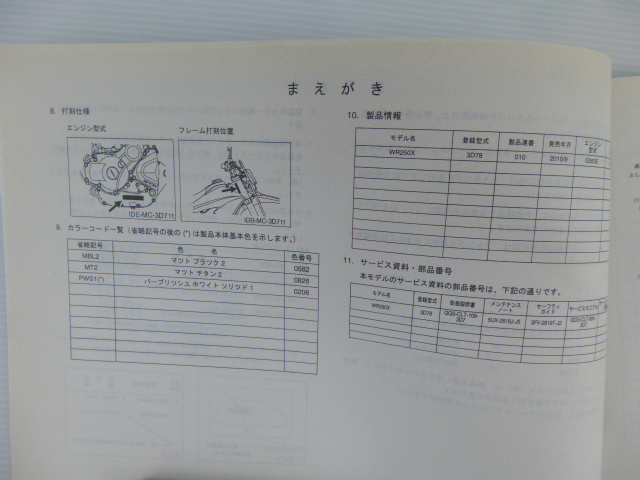 まえがき
8. 打刻仕様
エンジン型式
フレーム打刻位置
(DE-MC-3D711)
(DS-MC-3D711)
9. カラーコード一覧 (省略記号の後の (*) は製品本体基本色を示します｡)
省略記号 色 名 色番号
MBL2 マツト ブラツク 2 0582
MT2 マツト チタン 2 0826
PWS1(*) パープリッシュ ホワイト ソリツド 1 0206
10. 製品情報
モデル名 登録型式 製品連番 発売年月 エンジン型式
WR250X 3D78 010 2010/9 G363E
11. サービス資料・部品番号
本モデルのサービス資料の部品番号は、下記の通りです。
モデル名 登録型式 取扱説明書 メンテナンスノート セーフティガイド サービスマニュアル
WR250X 3D78 QQS-CLT-109-3D7